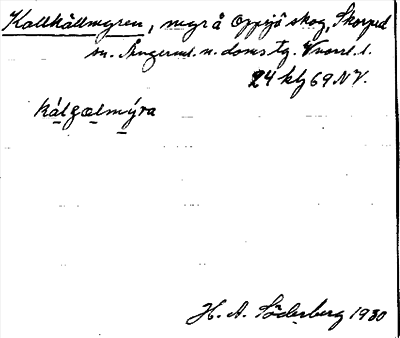 Kallhållmyren, myr å Oppsjö skog, Skorped
sn. Ångerml. n. doms. tg. Vnorrl. l.
24 kbl 69 NV.
kálgælmýra
H. A. Söderberg 1930